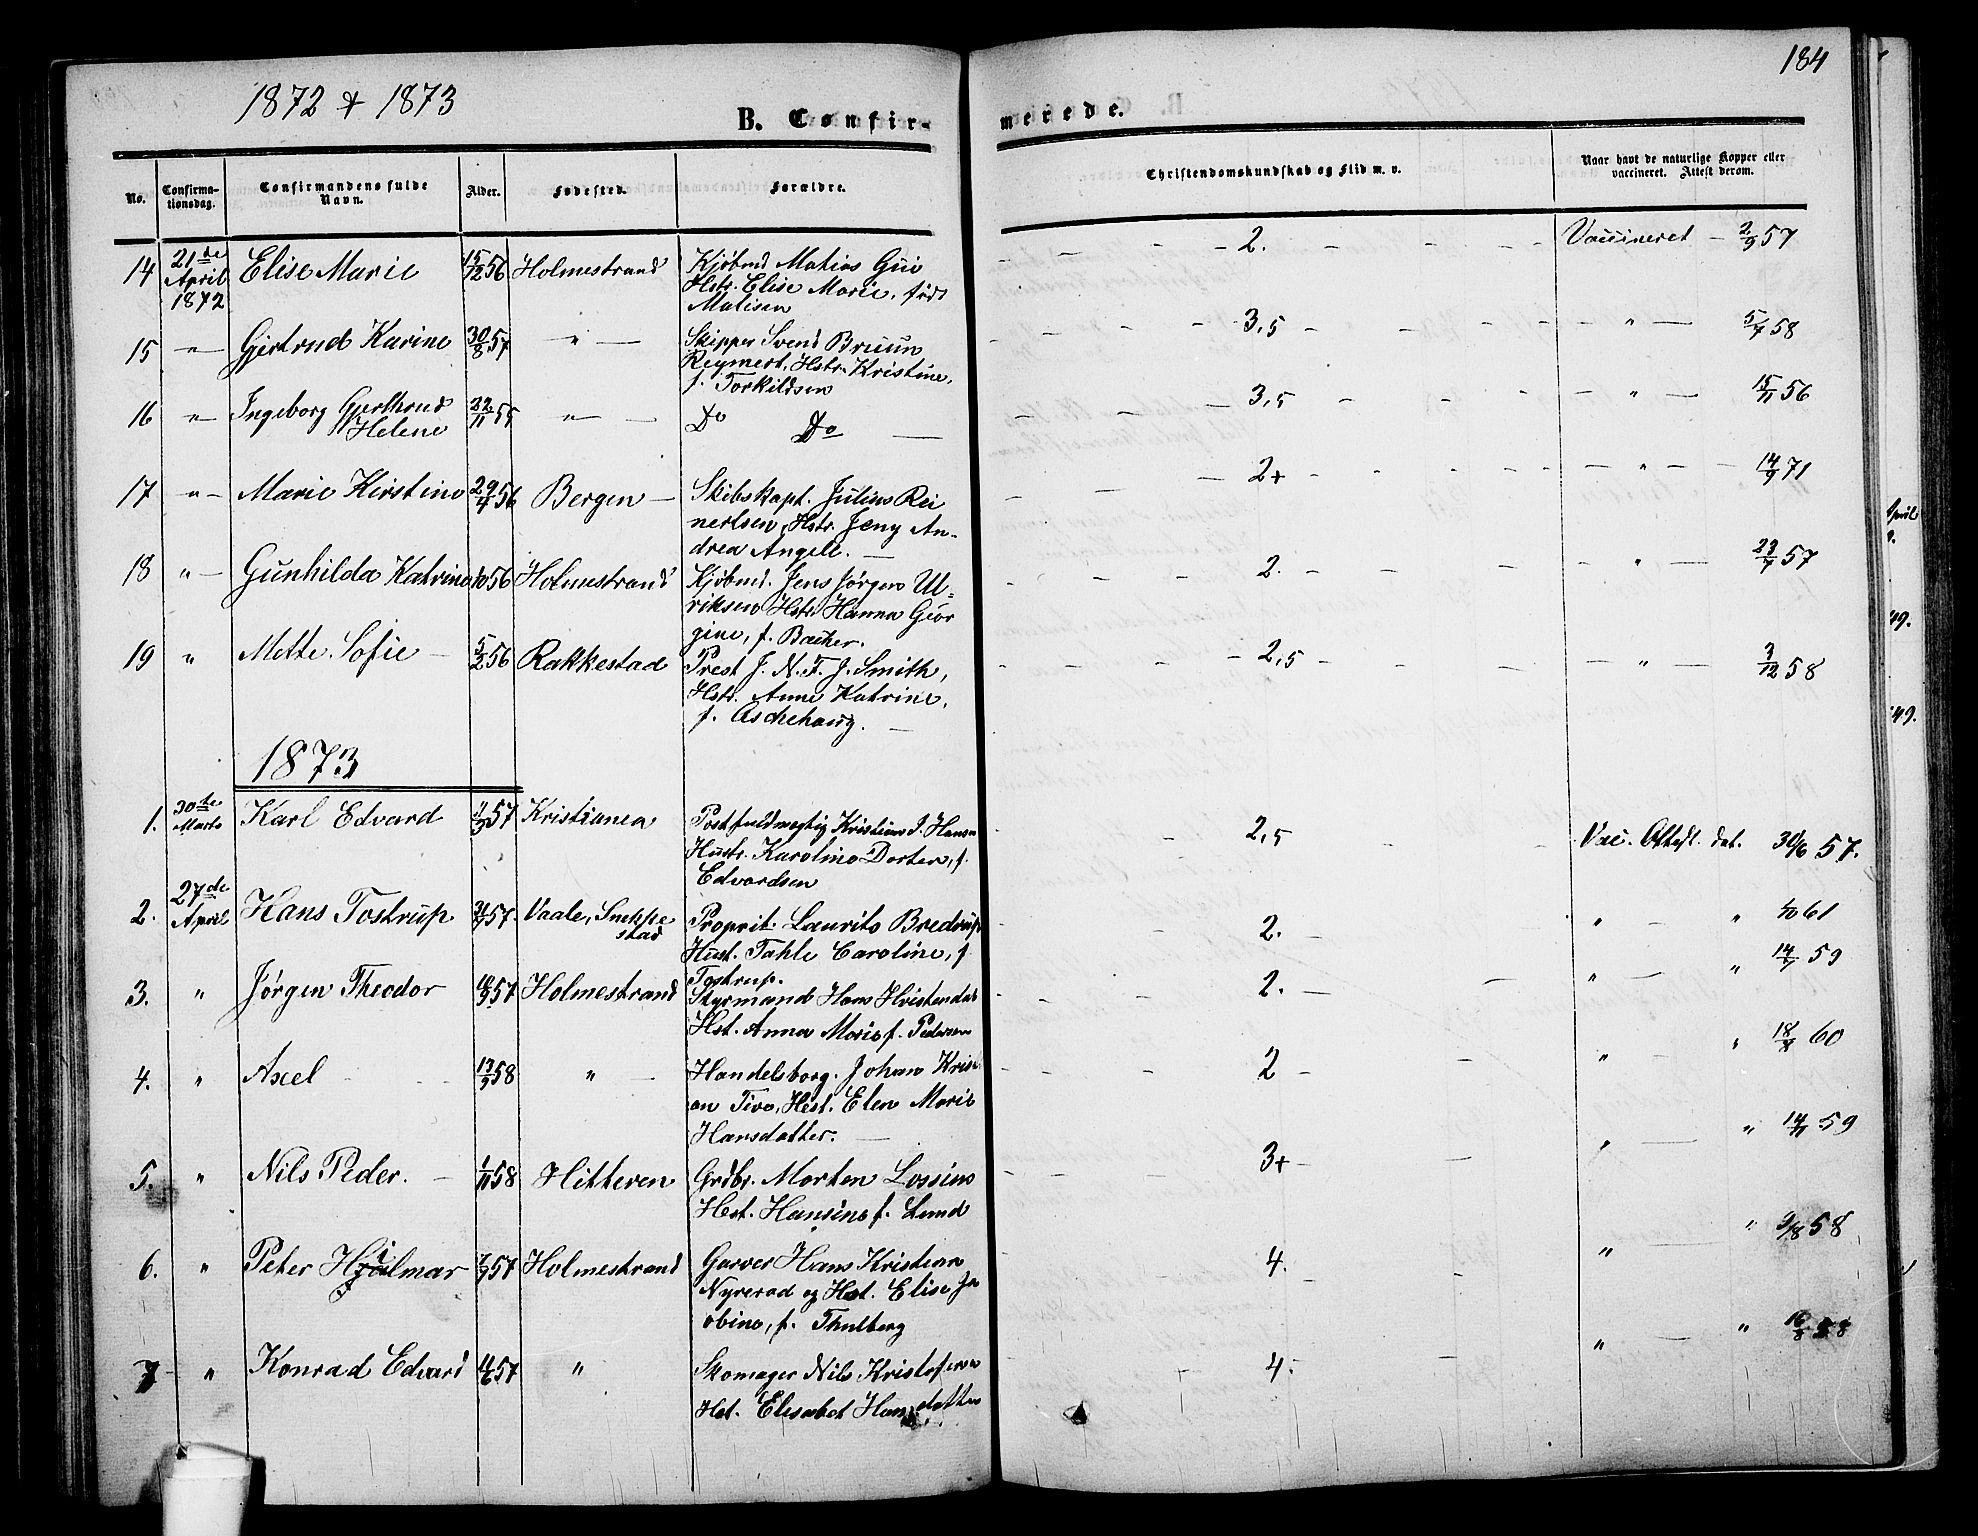 184
1872 & 1873
B. Confir-
merede.
No.
Confirma-
tionsdag.
Confirmandens fulde
Navn.
Alder.
Fødested.
Forældre.
Christendomskundskab og Flid m. v.
Naar havt de naturlige Kopper eller
vaccineret. Attest derom.
14 21de April 1872 Elise Marie 15/12 56 Holmestrand Kjøbmd Matias Gui
Hstr. Elise Marie, født
Matisen
2. Vaccineret - 2/9 57
15 " Gjertrud Karine 30/8 57 " Skipper Svend Bruun
Reymert, Hstr. Kristine,
f. Torkildsen
3,5 " 5/7 58
16 " Ingeborg Gjerthrud
Helene 22/11 55 " Do Do
3,5 " 15/11 56
17 " Marie Kirstine 29/4 56 Bergen Skibskapt. Julius Rei
nertsen, Hstr. Jeny An-
drea Angell.
2+ " 14/9 71
18 " Gunhilda Katrine 56 Holmestrand Kjøbmd. Jens Jørgen Ul-
riksen Hstr. Hanna Geor
gine, f. Bacher.
2. " 23/7 57
19 " Mette Sofie 5/2 56 Rakkestad Prest J. N. F. J. Smith,
Hstr. Anne Katrine,
f. Aschehoug.
2,5 " 3/12 58
1873
1. 30te Marts Karl Edvard 57 Kristiania Postfuldmægtig Kristian J. Hansen
Hustr. Karoline Dortea, f.
Edvardsen
2,5 Vac. Attest. dat. 30/6 57.
2. 27de April Hans Tostrup 57. Vaale, Sneppe
stad Proprit. Laurits Bredrup
Hust. Tahle Caroline, f.
Tostrup.
2. " " 61
3. " Jørgen Theodor 57 Holmestrand Styrmand Hans
Hst. Anna Marie f. Pedersen
2. " " 14/7 59
4. " Axel 58 " Handelsborg. Johan Kristi
an Tivo, Hst. Elen Marie
Hansdatter.
2 " " 60
5. " Nils Peder. 1/11 58 Hitteren Grdbr. Morten Lossius
Hst. Hansine f. Lund
3+ " " 14/11 59
6. " Peter Hjalmar 57 Holmestrand Garver Hans Kristian
Nyrerød og Hst. Elise Ja
obine, f. Thulberg
4. " " 58
7 " Konrad Edvard 57 " Skomager Nils Kristofersen
Hst. Elisabet Hansdatter
4. " " 16/8 58